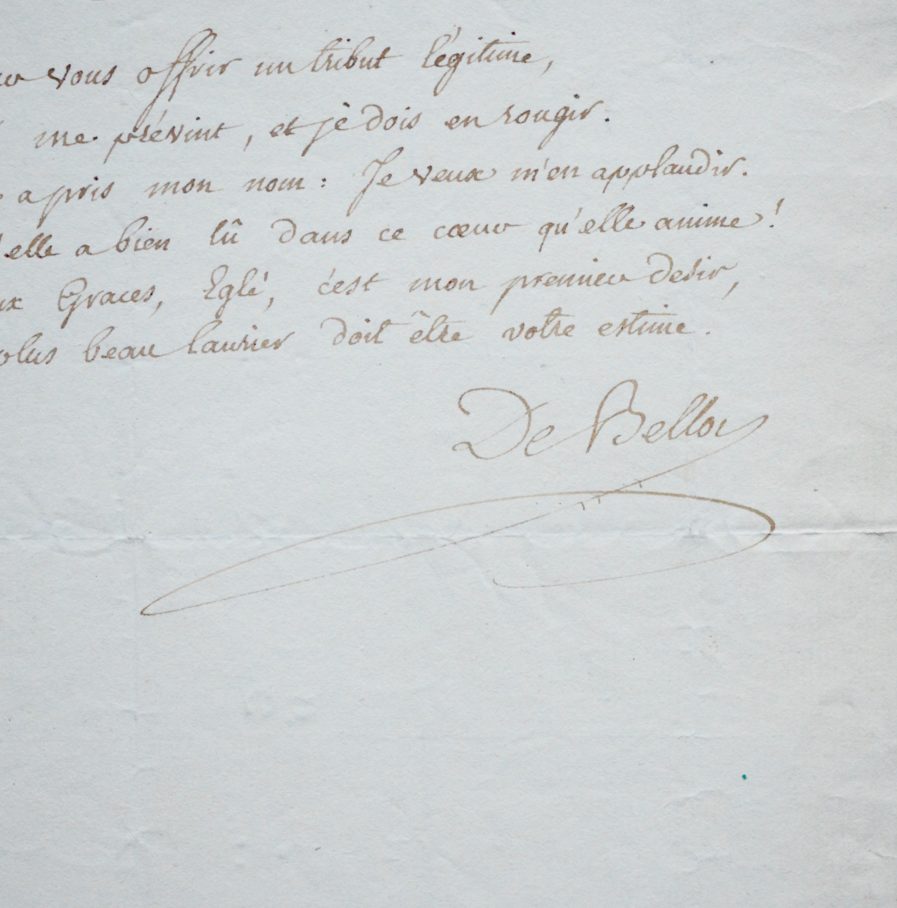 vous offrir un tribut légitime,
me prévint, et je dois en rougir.
a pris mon nom : Je veux m'en applaudir.
elle a bien lû dans ce cœur qu'elle anime !
Graces, Eglé, c'est mon premier desir,
plus beau laurier doit être votre estime.
De Belloi